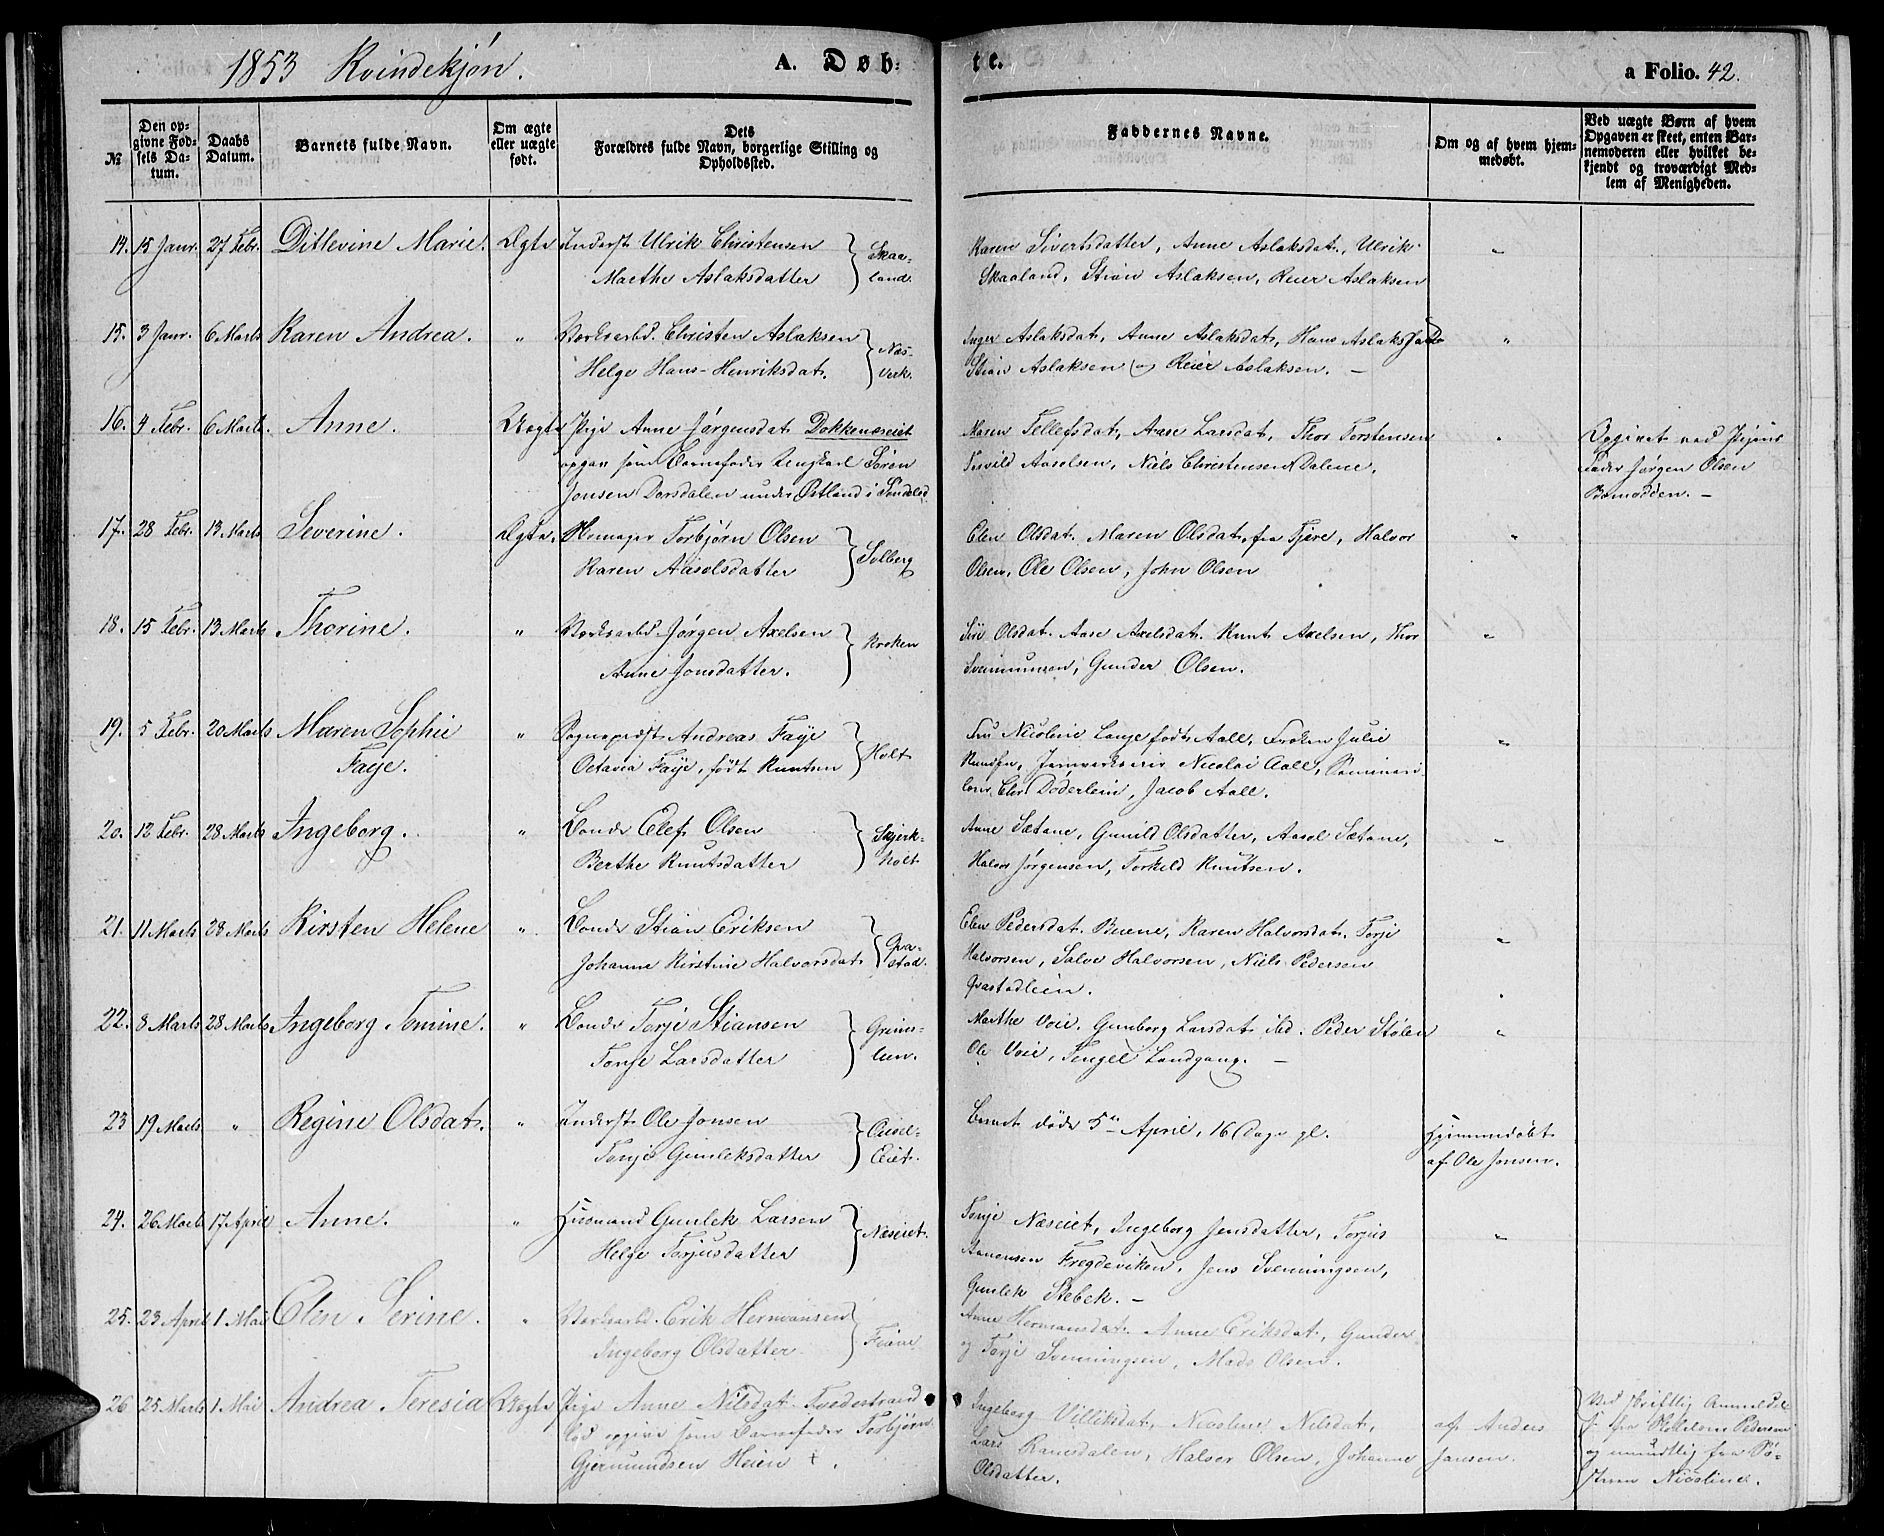 1853 Kvindekjøn. A. Døb: te. a Folio. 42.
No. Den opgivne Fødsels Datum. Daabs Datum. Barnets fulde Navn. Om ægte eller uægte født. Dets Forældres fulde Navn, borgerlige Stilling og Opholdssted. Faddernes Navne. Om og af hvem hjemmedøbt. Ved uægte Børn af hvem Opgaven er skeet, enten Barnemoderen eller hvilket bekjendt og troværdigt Medlem af Menigheden.
14. 15 Janr. 27 Febr. Ditlevine Marie. Ægte Inderst Ulrik Christensen } Skaa- Karen Sivertsdatter, Anne Aslaksdat., Ulrik "
Marthe Aslaksdatter land. Skaaland, Stian Aslaksen, Reier Aslaksen
15. 3 Janr. 6 Marts Karen Andrea. " Værksarbd. Christen Aslaksen } Næs- Inger Aslaksdat, Anne Aslaksdat, Hans Aslaks "
Helge Hans-Henriksdat. Verk. Stian Aslaksen og Reier Aslaksen. —
16. 4 Febr. 6 Marts. Anne. Uægte Pige Anne Jørgensdat. Dokkenæseiet Maren Tellefsdat, Aase Larsdat, Thor Torstensen " Opgivet ved Pigens
opgav som Barnefader Ungkarl Søren Tarvild Aasolsen, Niels Christensen Dalene. Fader Jørgen Olsen
Jonsen Dorsdalen under Østland i Søndeled
17. 28 Febr. 13 Marts Severine. Ægte. Torbjørn Olsen } Solberg Elen Olsdat. Maren Olsdat, fra Fjere, Halvor "
Karen Aasolsdatter Olsen, Ole Olsen, John Olsen
18. 15 Febr. 13 Marts Thorine. " Værksarbd Jørgen Axelsen } Kroken Siri Olsdat. Aase Axelsdat. Knut Axelsen, Thor "
Anne Jonsdatter. Svenumsen, Gunder Olsen.
19. 5 Febr. 20 Marts Maren Sophie " Sognepræst Andreas Faye } Holt Fru Nicoline Lange født Aall, Frøken Julie "
Faye. Octavia Faye, født Knutsen Knudsen, Jernværkseier Nicolai Aall, Seminari-
Døderlein, Jacob Aall.
20. 12 Febr. 28 Marts Ingeborg. " Bonde Elef Olsen } Skjerk- Anne Sætane, Gunild Olsdatter, Aasol Sætane, "
Berthe Knutsdatter holt. Halvor Jørgensen, Torkeld Knutsen.
21. 11 Marts 28 Marts Kirsten Helene " Bonde Stian Eriksen } Qva- Elen Pedersdat. Beiene, Karen Halvorsdat. Torje "
Johanne Kirstine Halvorsdat. stad. Halvorsen, Salve Halvorsen, Niels Pedersen
Qvastadleien.
22. 8 Marts 28 Marts Ingeborg Tomine. " Bonde Torje Stiansen } Grims- Marthe Voie, Gunborg Larsdat. ibd. Peder Stølen "
Tonje Larsdatter leen. Ole Voie, Tengel Landgang. —
23 19 Marts " Regine Olsdat. " Inderst Ole Jonsen } Barnet døde 5te April, 16 Dage gl. Hjemmedøbt
Tonje Gunleksdatter Eiet. af Ole Jonsen.
24. 26 Marts 17 April Anne. " Husmand Gunlek Larsen } Næseiet. Tonje Næseiet, Ingeborg Jensdatter, Torjus "
Helge Torjusdatter Aanonsen Fregdeviken, Jens Svenningsen,
Gunlek Stebek. —
25. 23 April 1 Mai Elen Serine. " Værksarbd. Erik Hermansen } Fiane Anne Hermansdat. Anne Eriksdat, Gunder
Ingeborg Olsdatter og Torje Svenningsen, Mads Olsen.
26 25 Marts 1 Mai Andrea Teresia Uægte Pige Anne Nilsdat. Tvedestrand Ingeborg Villiksdat, Nicoline Nilsdat, af Anders Ved skriftlig Anmeldel-
lod opgive som Barnefader Torbjørn Lars Ramsdalen, Halvor Olsen, Johanne Jansen. fra Pedersen
Gjermundsen Heien + . Olsdatter. og mundtlig fra Sø-
steren Nicoline.